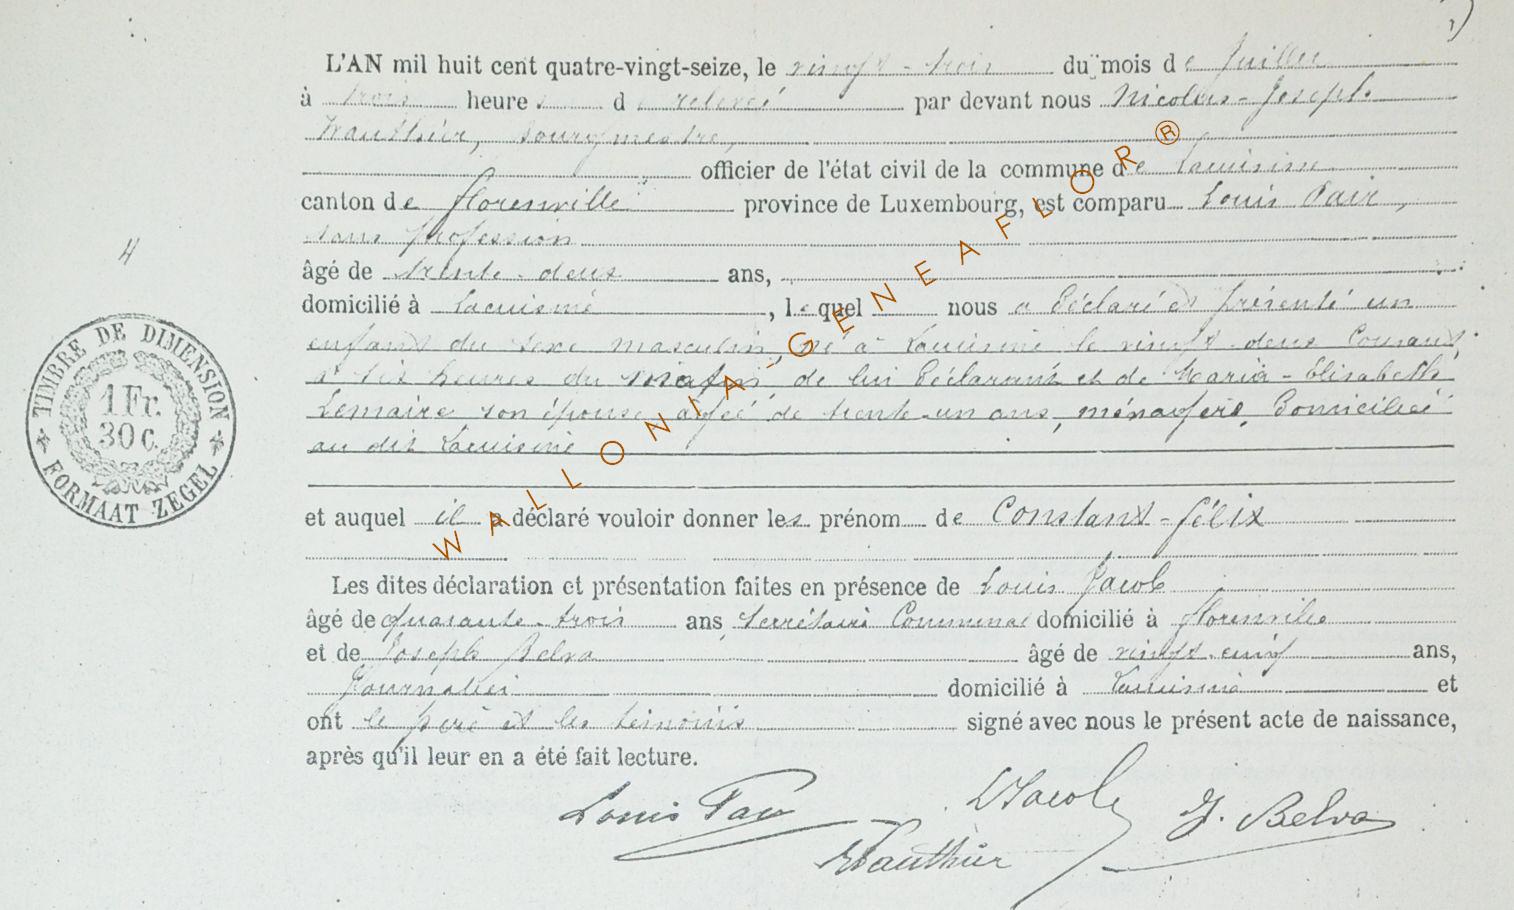 L'AN mil huit cent quatre-vingt-seize, le vingt-trois du mois de Juillet
à trois heures de relevée par devant nous Nicolas-Joseph
Wauthier, bourgmestre,
officier de l'état civil de la commune de Lacuisine
canton de Florenville province de Luxembourg, est comparu Louis Pair,
sans profession
âgé de trente-deux ans,
domicilié à Lacuisine, lequel nous a déclaré et présenté un
enfant du sexe masculin, né à Lacuisine le vingt-deux courant,
à six heures du matin de lui déclarant et de Maria-Elisabeth
Lemaire son épouse, âgée de trente-un ans, ménagère, domiciliée
au dit Lacuisine
et auquel il a déclaré vouloir donner les prénom de Constant-Félix
Les dites déclaration et présentation faites en présence de Louis Jacob
âgé de quarante-trois ans, secrétaire communal domicilié à Florenville
et de Joseph Belva âgé de vingt-cinq ans,
journalier domicilié à Lacuisine et
ont le père et les témoins signé avec nous le présent acte de naissance,
après qu'il leur en a été fait lecture.
Louis Pair
LJacob
J. Belva
NWauthier
4
TIMBRE DE DIMENSION
1 Fr.
30 C.
FORMAAT ZEGEL
WALLONIA-GENEAFLOR®